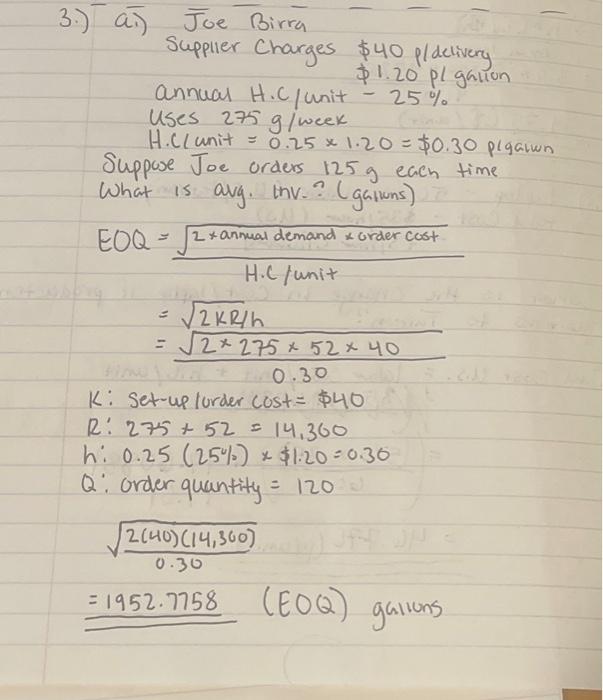 3.) a.) Joe Birra
Supplier Charges $40 p/delivery
$1.20 p/ gallon
annual H.C/unit - 25%
Uses 275 g/week
H.C/unit = 0.25 × 1.20 = $0.30 p/gallon
Suppose Joe orders 125 g each time
What is avg. inv.? (gallons)
EOQ = √2 * annual demand * order cost
H.C/unit
= √2KR/h
= √2 * 275 * 52 * 40
0.30
K: Set-up/order cost = $40
R: 275 * 52 = 14,300
h: 0.25 (25%) * $1.20 = 0.30
Q: order quantity = 120
√2(40)(14,300)
0.30
= 1952.7758 (EOQ) gallons